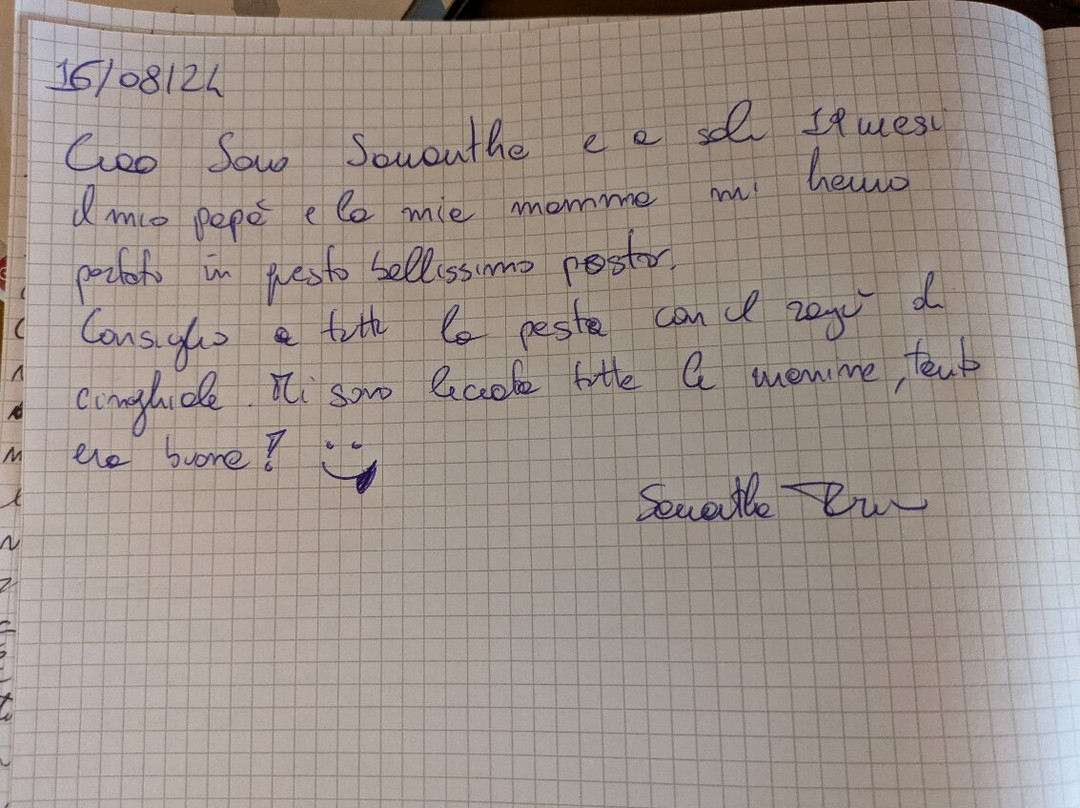 16/08/24
Ciao Sono Samantha e a soli 19 mesi
il mio papà e la mia mamma mi hanno
portato in questo bellissimo posto.
Consiglio a tutti la pasta con il ragù di
cinghiale. Mi sono leccata tutte le manine, tanto
era buona!
Samantha